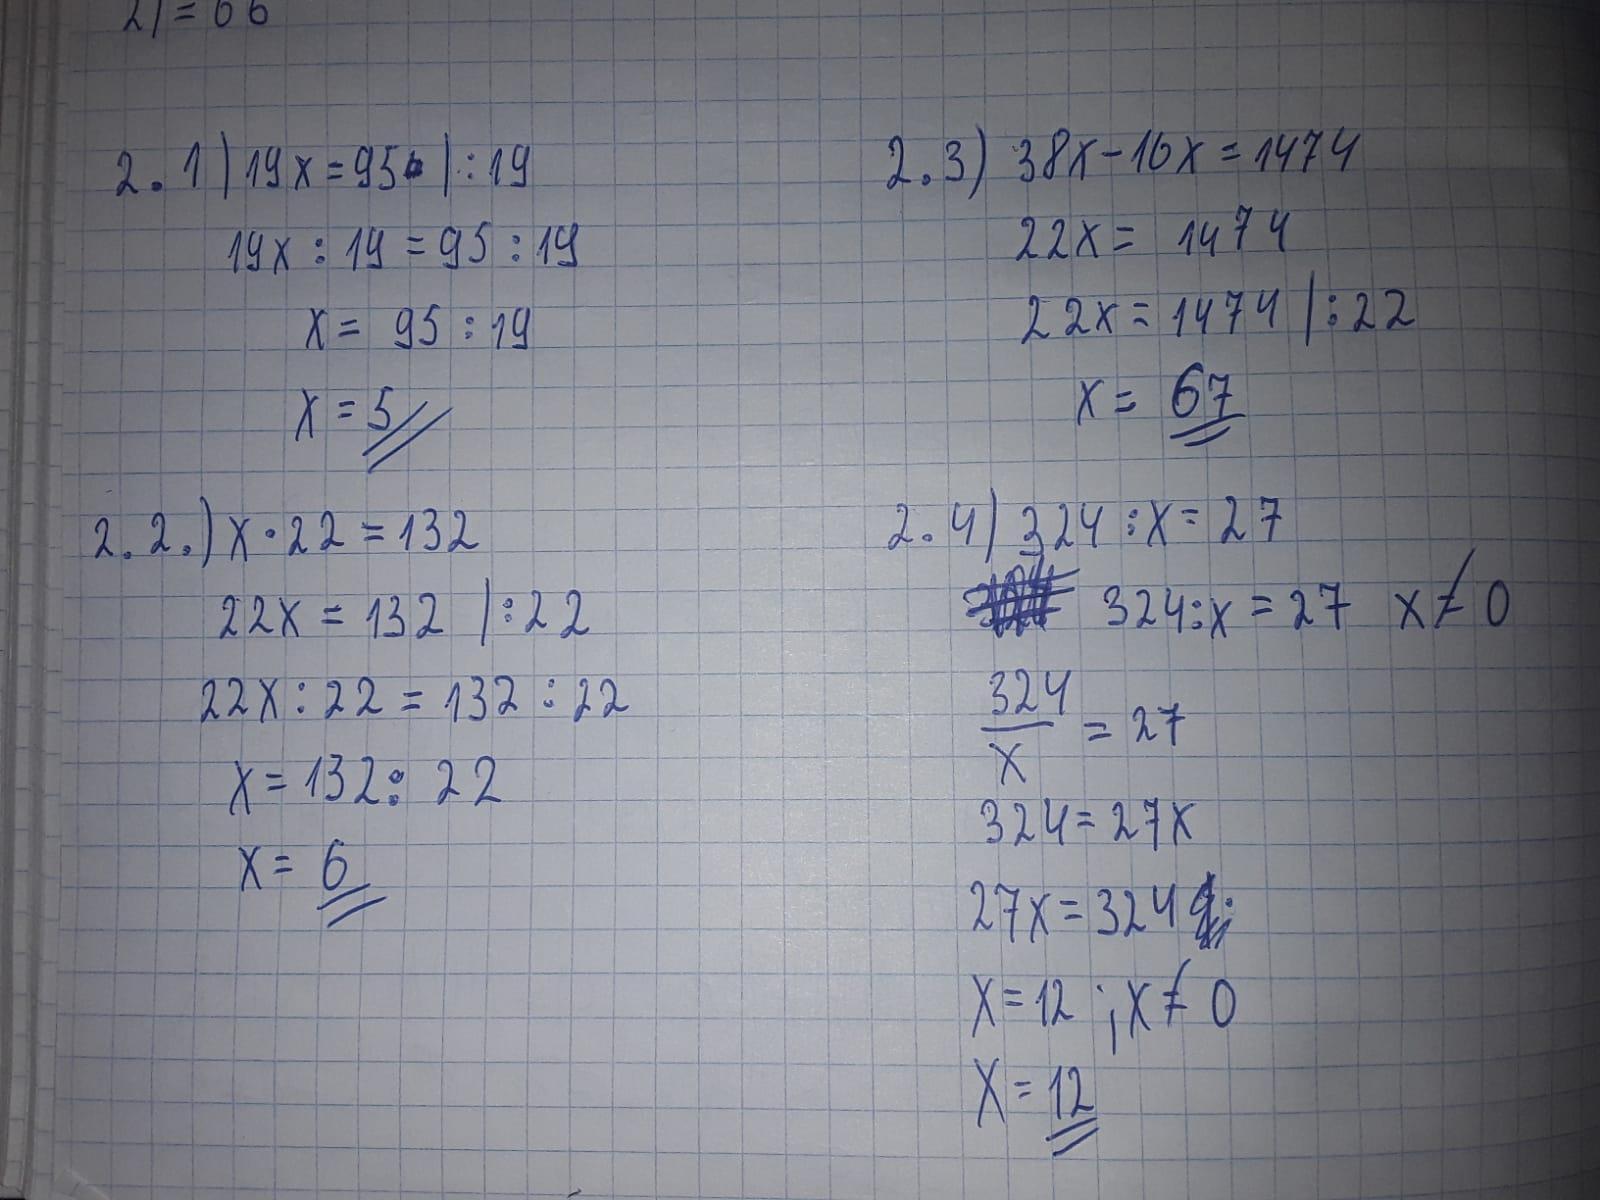 2) = 66
2. 1) 19x = 95 | : 19
19x : 19 = 95 : 19
x = 95 : 19
x = 5
2. 2.) x · 22 = 132
22x = 132 | : 22
22x : 22 = 132 : 22
x = 132 : 22
x = 6
2. 3) 38x - 16x = 1474
22x = 1474
22x = 1474 | : 22
x = 67
2. 4) 324 : x = 27
324 : x = 27 x ≠ 0
324/x = 27
324 = 27x
27x = 324
x = 12 ; x ≠ 0
x = 12